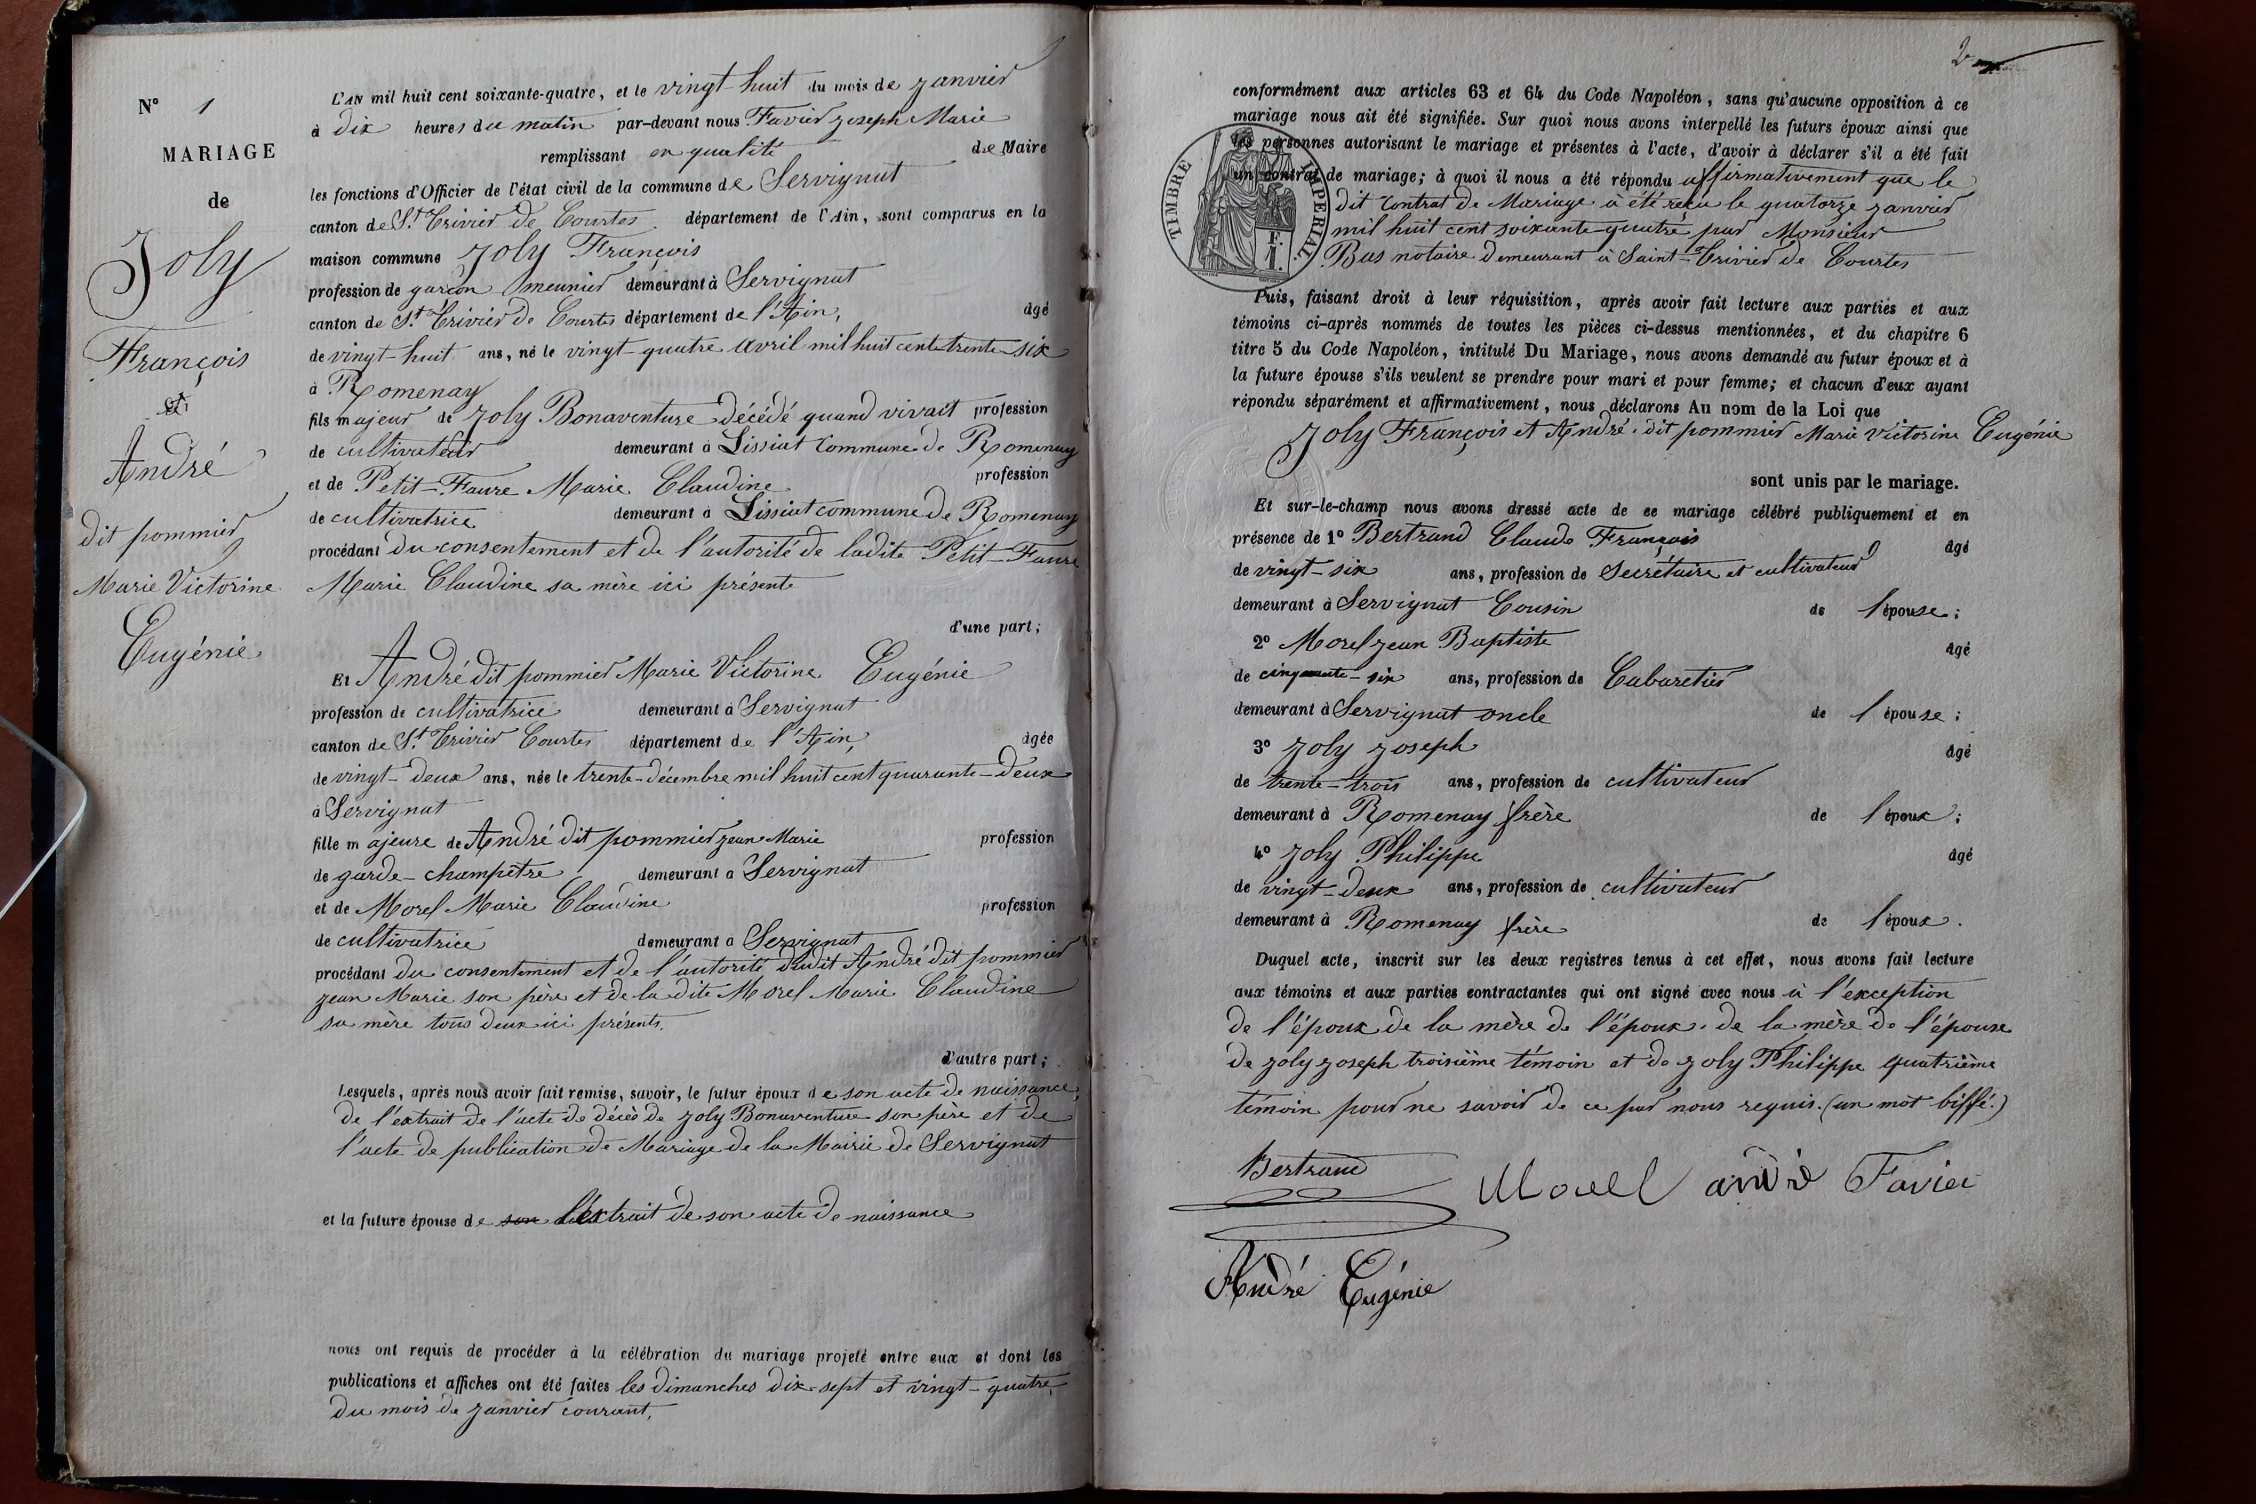 N° 1
MARIAGE
de
Joly
François
et
André
dit pommier
Marie Victorine
Eugénie
L'AN mil huit cent soixante-quatre, et le vingt huit du mois de janvier
à dix heures du matin par-devant nous Favier Joseph Marie
remplissant en qualité de Maire
les fonctions d'Officier de l'état civil de la commune de Servignat
canton de St Trivier de Courtes département de l'Ain, sont comparus en la
maison commune Joly François
profession de garçon meunier demeurant à Servignat
canton de St Trivier de Courtes département de l'Ain, âgé
de vingt-huit ans, né le vingt-quatre avril mil huit cent trente-six
à Romenay
fils majeur de Joly Bonaventure décédé quand vivait profession
de cultivateur demeurant à Lissiat commune de Romenay
et de Petit-Faure Marie Claudine profession
de cultivatrice demeurant à Lissiat commune de Romenay
procédant du consentement et de l'autorité de ladite Petit-Faure
Marie Claudine sa mère ici présente
d'une part;
Et André dit pommier Marie Victorine Eugénie
profession de cultivatrice demeurant à Servignat
canton de St Trivier Courtes département de l'Ain, âgée
de vingt-deux ans, née le trente-décembre mil huit cent quarante-deux
à Servignat
fille majeure de André dit pommier jean Marie profession
de garde-champêtre demeurant à Servignat
et de Morel Marie Claudine profession
de cultivatrice demeurant à Servignat
procédant du consentement et de l'autorité dudit André dit pommier
jean Marie son père et de la dite Morel Marie Claudine
sa mère tous deux ici présents.
d'autre part;
Lesquels, après nous avoir fait remise, savoir, le futur époux de son acte de naissance,
de l'extrait de l'acte de décès de Joly Bonaventure son père et de
l'acte de publication de Mariage de la Mairie de Servignat
et la future épouse de son l'extrait de son acte de naissance
nous ont requis de procéder à la célébration du mariage projeté entre eux et dont les
publications et affiches ont été faites les dimanches dix-sept et vingt-quatre
du mois de janvier courant,
2
conformément aux articles 63 et 64 du Code Napoléon, sans qu'aucune opposition à ce
mariage nous ait été signifiée. Sur quoi nous avons interpellé les futurs époux ainsi que
les personnes autorisant le mariage et présentes à l'acte, d'avoir à déclarer s'il a été fait
un contrat de mariage; à quoi il nous a été répondu affirmativement que le
dit contrat de Mariage a été reçu le quatorze janvier
mil huit cent soixante-quatre par Monsieur
Bas notaire demeurant à Saint-Trivier de Courtes
TIMBRE IMPERIAL
F. 1.
Puis, faisant droit à leur réquisition, après avoir fait lecture aux parties et aux
témoins ci-après nommés de toutes les pièces ci-dessus mentionnées, et du chapitre 6
titre 5 du Code Napoléon, intitulé Du Mariage, nous avons demandé au futur époux et à
la future épouse s'ils veulent se prendre pour mari et pour femme; et chacun d'eux ayant
répondu séparément et affirmativement, nous déclarons Au nom de la Loi que
Joly François et André dit pommier Marie Victorine Eugénie
sont unis par le mariage.
Et sur-le-champ nous avons dressé acte de ce mariage célébré publiquement et en
présence de 1° Bertrand Claude François âgé
de vingt-six ans, profession de Secrétaire et cultivateur
demeurant à Servignat Cousin de l'épouse;
2° Morel jean Baptiste âgé
de cinquante-six ans, profession de Cabaretier
demeurant à Servignat oncle de l'épouse;
3° Joly joseph âgé
de trente-trois ans, profession de cultivateur
demeurant à Romenay frère de l'époux;
4° Joly Philippe âgé
de vingt-deux ans, profession de cultivateur
demeurant à Romenay frère de l'époux.
Duquel acte, inscrit sur les deux registres tenus à cet effet, nous avons fait lecture
aux témoins et aux parties contractantes qui ont signé avec nous à l'exception
de l'époux de la mère de l'époux, de la mère de l'épouse
de joly joseph troisième témoin et de joly Philippe quatrième
témoin pour ne savoir de ce par nous requis. (un mot biffé.)
Bertrand Morel andré Favier
André Eugénie